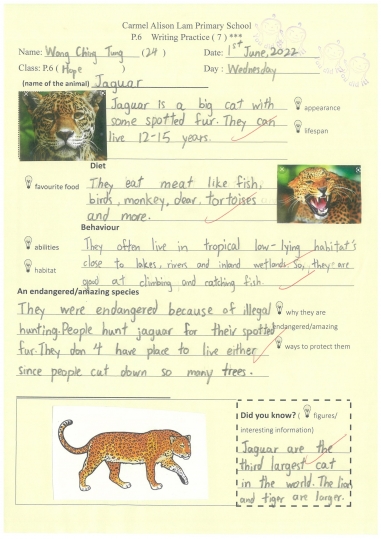 Carmel Alison Lam Primary School
P.6 Writing Practice ( 7 ) ***
Name: Wong Ching Tung (24) Date: 1st June, 2022
Class: P.6 ( Hope ) Day : Wednesday
(name of the animal) Jaguar
Jaguar is a big cat with
some spotted fur. They can
live 12-15 years.
appearance
lifespan
Diet
favourite food
They eat meat like fish,
birds, monkey, dear, tortoises
and more.
Behaviour
abilities
habitat
They often live in tropical low-lying habitat's
close to lakes, rivers and inland wetlands. So, they are
good at climbing and catching fish.
An endangered/amazing species
They were endangered because of illegal
hunting. People hunt jaguar for their spotted
fur. They don 4 have place to live either
since people cut down so many trees.
why they are
endangered/amazing
ways to protect them
Did you know? ( figures/
interesting information)
Jaguar are the
third largest cat
in the world. The lion
and tiger are larger.